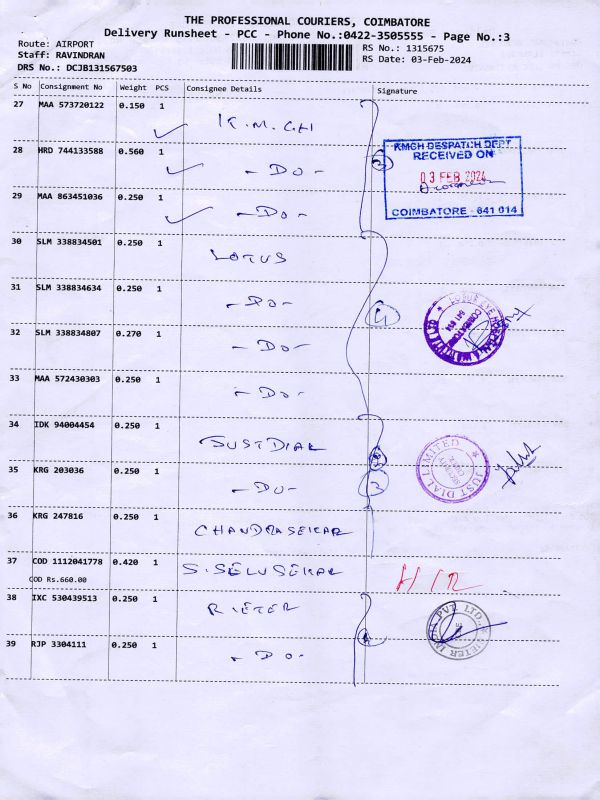 THE PROFESSIONAL COURIERS, COIMBATORE
Delivery Runsheet - PCC - Phone No.:0422-3505555 - Page No.:3
Route: AIRPORT
RS No.: 1315675
Staff: RAVINDRAN
RS Date: 03-Feb-2024
DRS No.: DCJB131567503
S No Consignment No Weight PCS Consignee Details Signature
27 MAA 573720122 0.150 1 K.M.CH
28 HRD 744133588 0.560 1 - Do -
KMCH DESPATCH DEPT
RECEIVED ON
03 FEB 2024
COIMBATORE - 641 014
29 MAA 863451036 0.250 1 - Do -
30 SLM 338834501 0.250 1 LOTUS
31 SLM 338834634 0.250 1 - Do -
4
32 SLM 338834807 0.270 1 - Do -
33 MAA 572430303 0.250 1 - Do -
34 IDK 94004454 0.250 1 JUSTDIAL
JUST DIAL LIMITED
35 KRG 203036 0.250 1 - Do -
2
36 KRG 247816 0.250 1 CHANDRASEKAR
37 COD 1112041778 0.420 1 S.SELVSEKAR
COD Rs.660.00
38 IXC 530439513 0.250 1 RIETER
39 RJP 3304111 0.250 1 - Do -